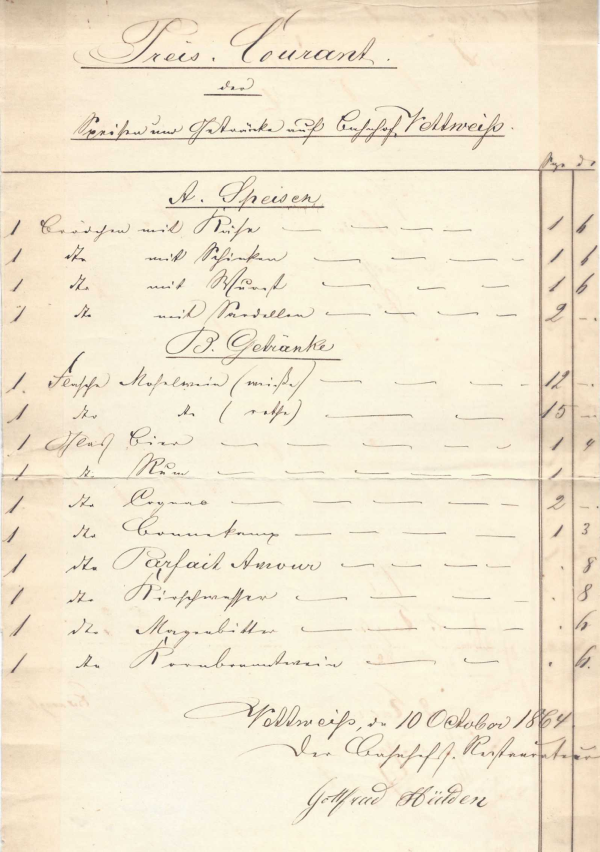 Preis-Courant.
der
Speisen und Getränke auf Bahnhof Vettweiß.
Sgr. d.
A. Speisen
1 Brödchen mit Käse — — — — 1 6
1 dto mit Schinken — — — — 1 6
1 dto mit Wurst — — — 1 6
1 dto mit Sardellen — — — — 2 —
B. Getränke
1. Flasche Moselwein (weiße) — — — — 12 —
1 dto dto (rothe) — — 15 —
1 Glas Bier — — — — — 1 4
1 dto Rum — — — — — 1
1 dto Cognac — — — — — 2 —
1 dto Bonnekamp — — — — 1 3
1 dto Parfait Amour — — — — . 8
1 dto Kirschwasser — — — — . 8
1 dto Magenbitter — — — — . 6
1 dto Kornbranntwein — — — . 6.
Vettweiß, den 10 October 1864.
Der Bahnhofs-Restaurateur
Gottfried Hülden